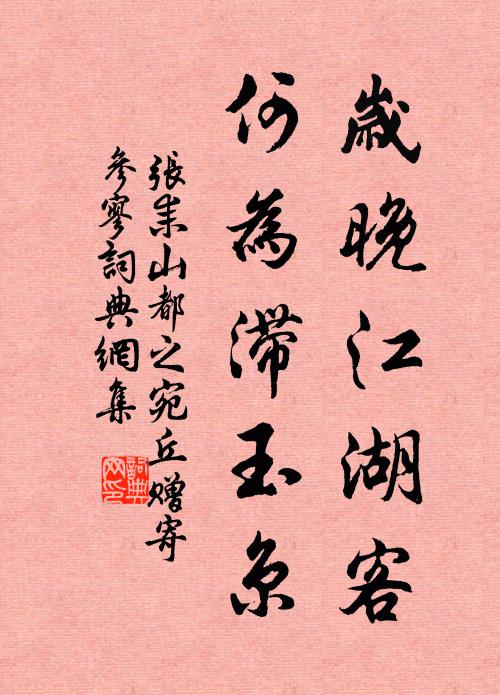 歲晚江湖客
何為滯玉京
張耒山都之宛丘贈寄
參寥詞典網集
詞典网印